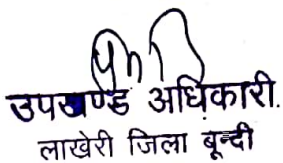 उपखण्ड अधिकारी.
लाखेरी जिला बून्दी